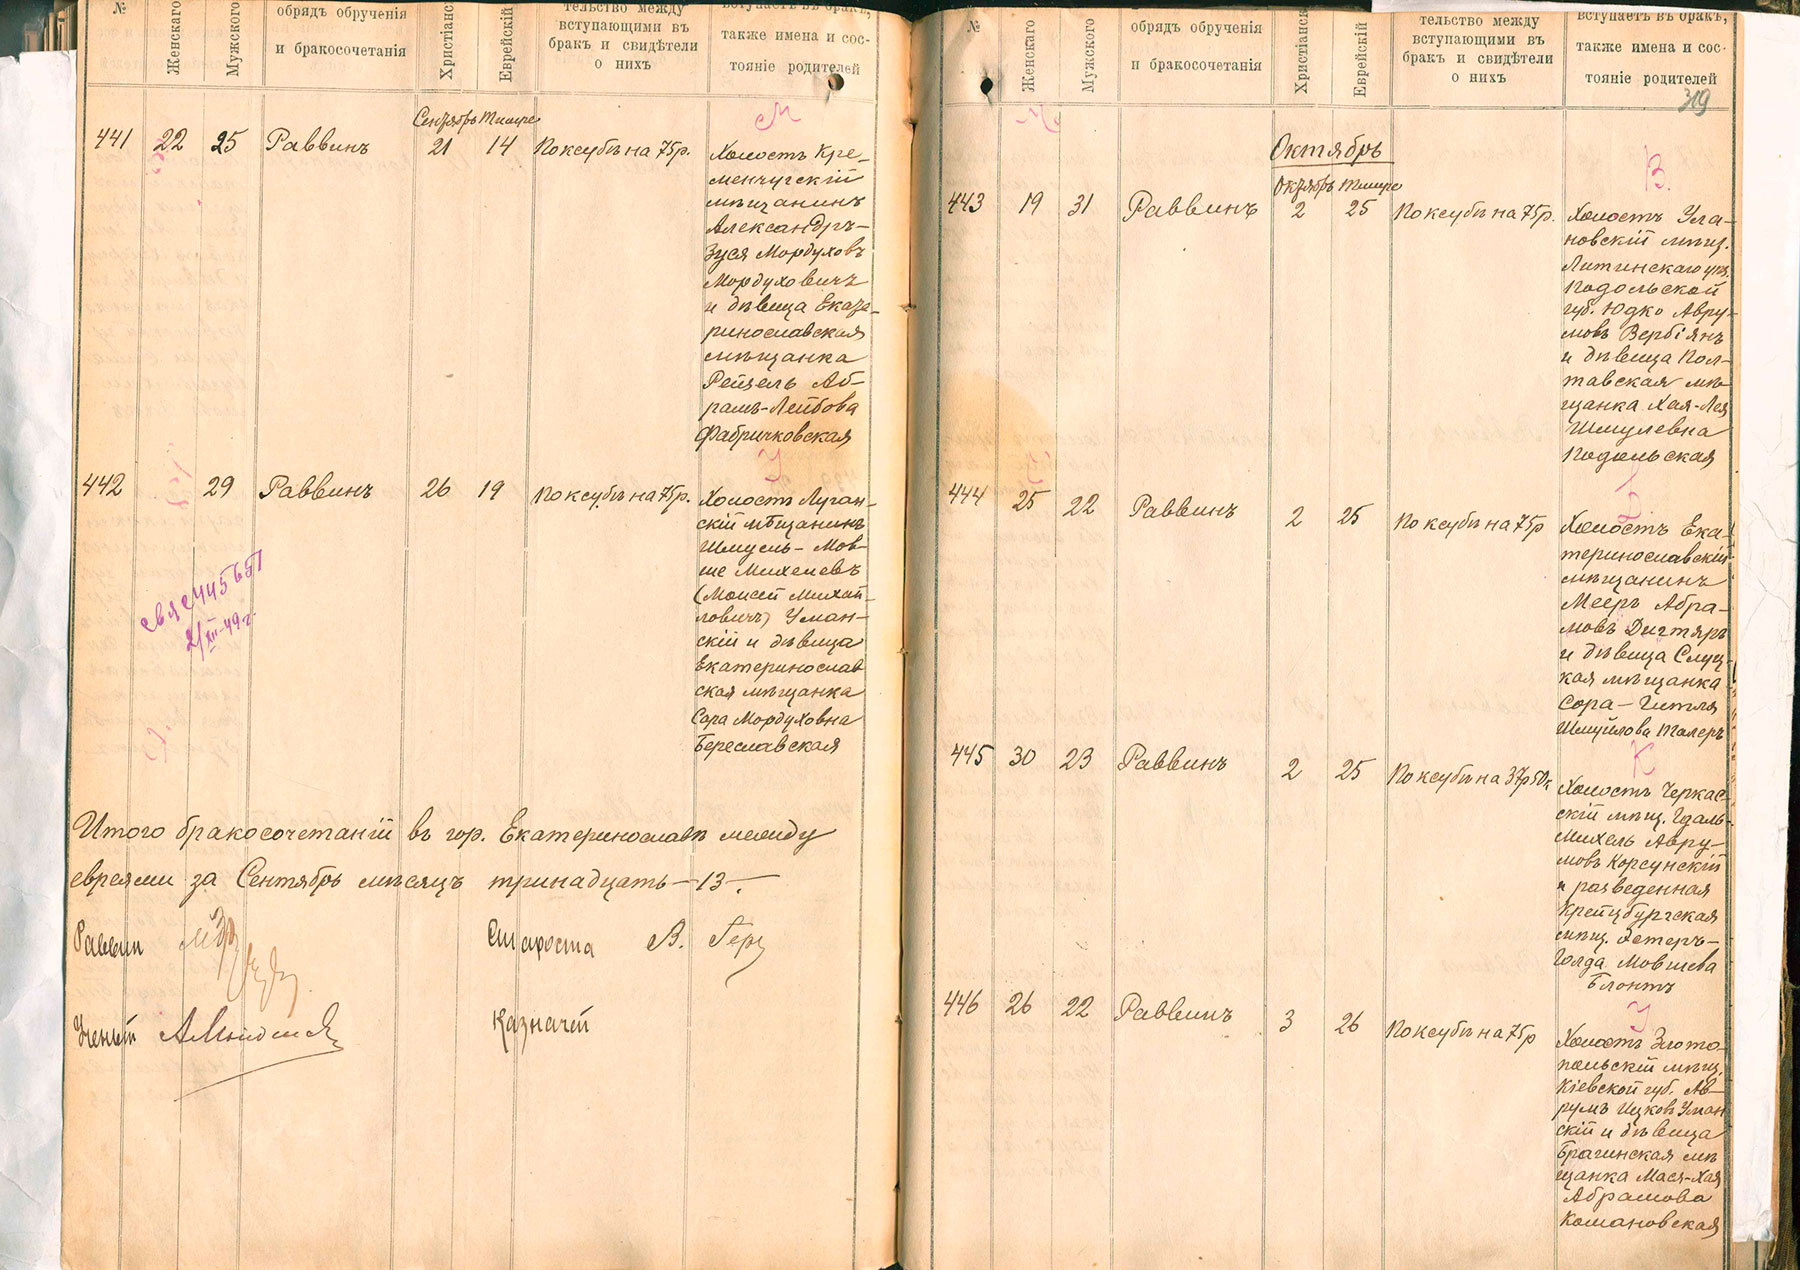 №
Женскаго
Мужского
обрядъ обрученія
и бракосочетанія
Христіанс
Еврейскій
тельство между
вступающими въ
бракъ и свидѣтели
о нихъ
вступаетъ въ бракъ,
также имена и сос-
тояніе родителей
М
Сентябрь Тишре
441 22 25 Раввинъ 21 14 По ксубѣ на 75 р.
Холостъ Кре-
менчугскій
мѣщанинъ
Александръ-
Зуся Мордуховъ
Мордуховичъ
и дѣвица Екате-
ринославская
мѣщанка
Рейзель Аб-
рамъ-Лейбова
Фабричковская
У
442 29 Раввинъ 26 19 По ксубѣ на 75 р.
Холостъ Луган-
скій мѣщанинъ
Шмуель-Мов-
ше Михелевъ
(Моисей Михай-
ловичъ) Уман-
скій и дѣвица
Екатеринослав
ская мѣщанка
Сора Мордуховна
Береславская
21/XII-49 г.
Итого бракосочетаній въ гор. Екатеринославѣ между
евреями за Сентябрь мѣсяцъ тринадцать-13-.
Раввин
Староста В. Герц
Ученый
Казначей
№
Женскаго
Мужского
обрядъ обрученія
и бракосочетанія
Христіанск
Еврейскій
тельство между
вступающими въ
бракъ и свидѣтели
о нихъ
вступаетъ въ бракъ,
также имена и сос-
тояніе родителей
319
Октябрь
В.
Октябрь Тишре
443 19 31 Раввинъ 2 25 По ксубѣ на 75 р.
Холостъ Ула-
новскій мѣщ.
Литинскаго уѣз.
Подольской
губ. Юдко Авру-
мовъ Вербіянъ
и дѣвица Пол-
тавская мѣ
щанка Хая-Лея
Шмулевна
Подольская
444 25 22 Раввинъ 2 25 По ксубѣ на 75 р
Холостъ Ека-
теринославскій
мѣщанинъ
Мееръ Абра-
мовъ Дигтяръ
и дѣвица Слуц-
кая мѣщанка
Сора-Гитля
Шмуйлова Талеръ
К
445 30 23 Раввинъ 2 25 По ксубѣ на 37р 50к
Холостъ Черкас-
скій мѣщ. Гдаль-
Михель Авру-
мовъ Корсунскій
и разведенная
Крейцбургская
мѣщ. Эстеръ-
Голда Мовшева
Блонтъ
У
446 26 22 Раввинъ 3 26 По ксубѣ на 75 р
Холостъ Злото-
польскій мѣщ.
Кіевской губ. Ав-
румъ Ицковъ Уман
скій и дѣвица
Брагинская мѣ
щанка Мася-Хая
Абрамова
Комановская